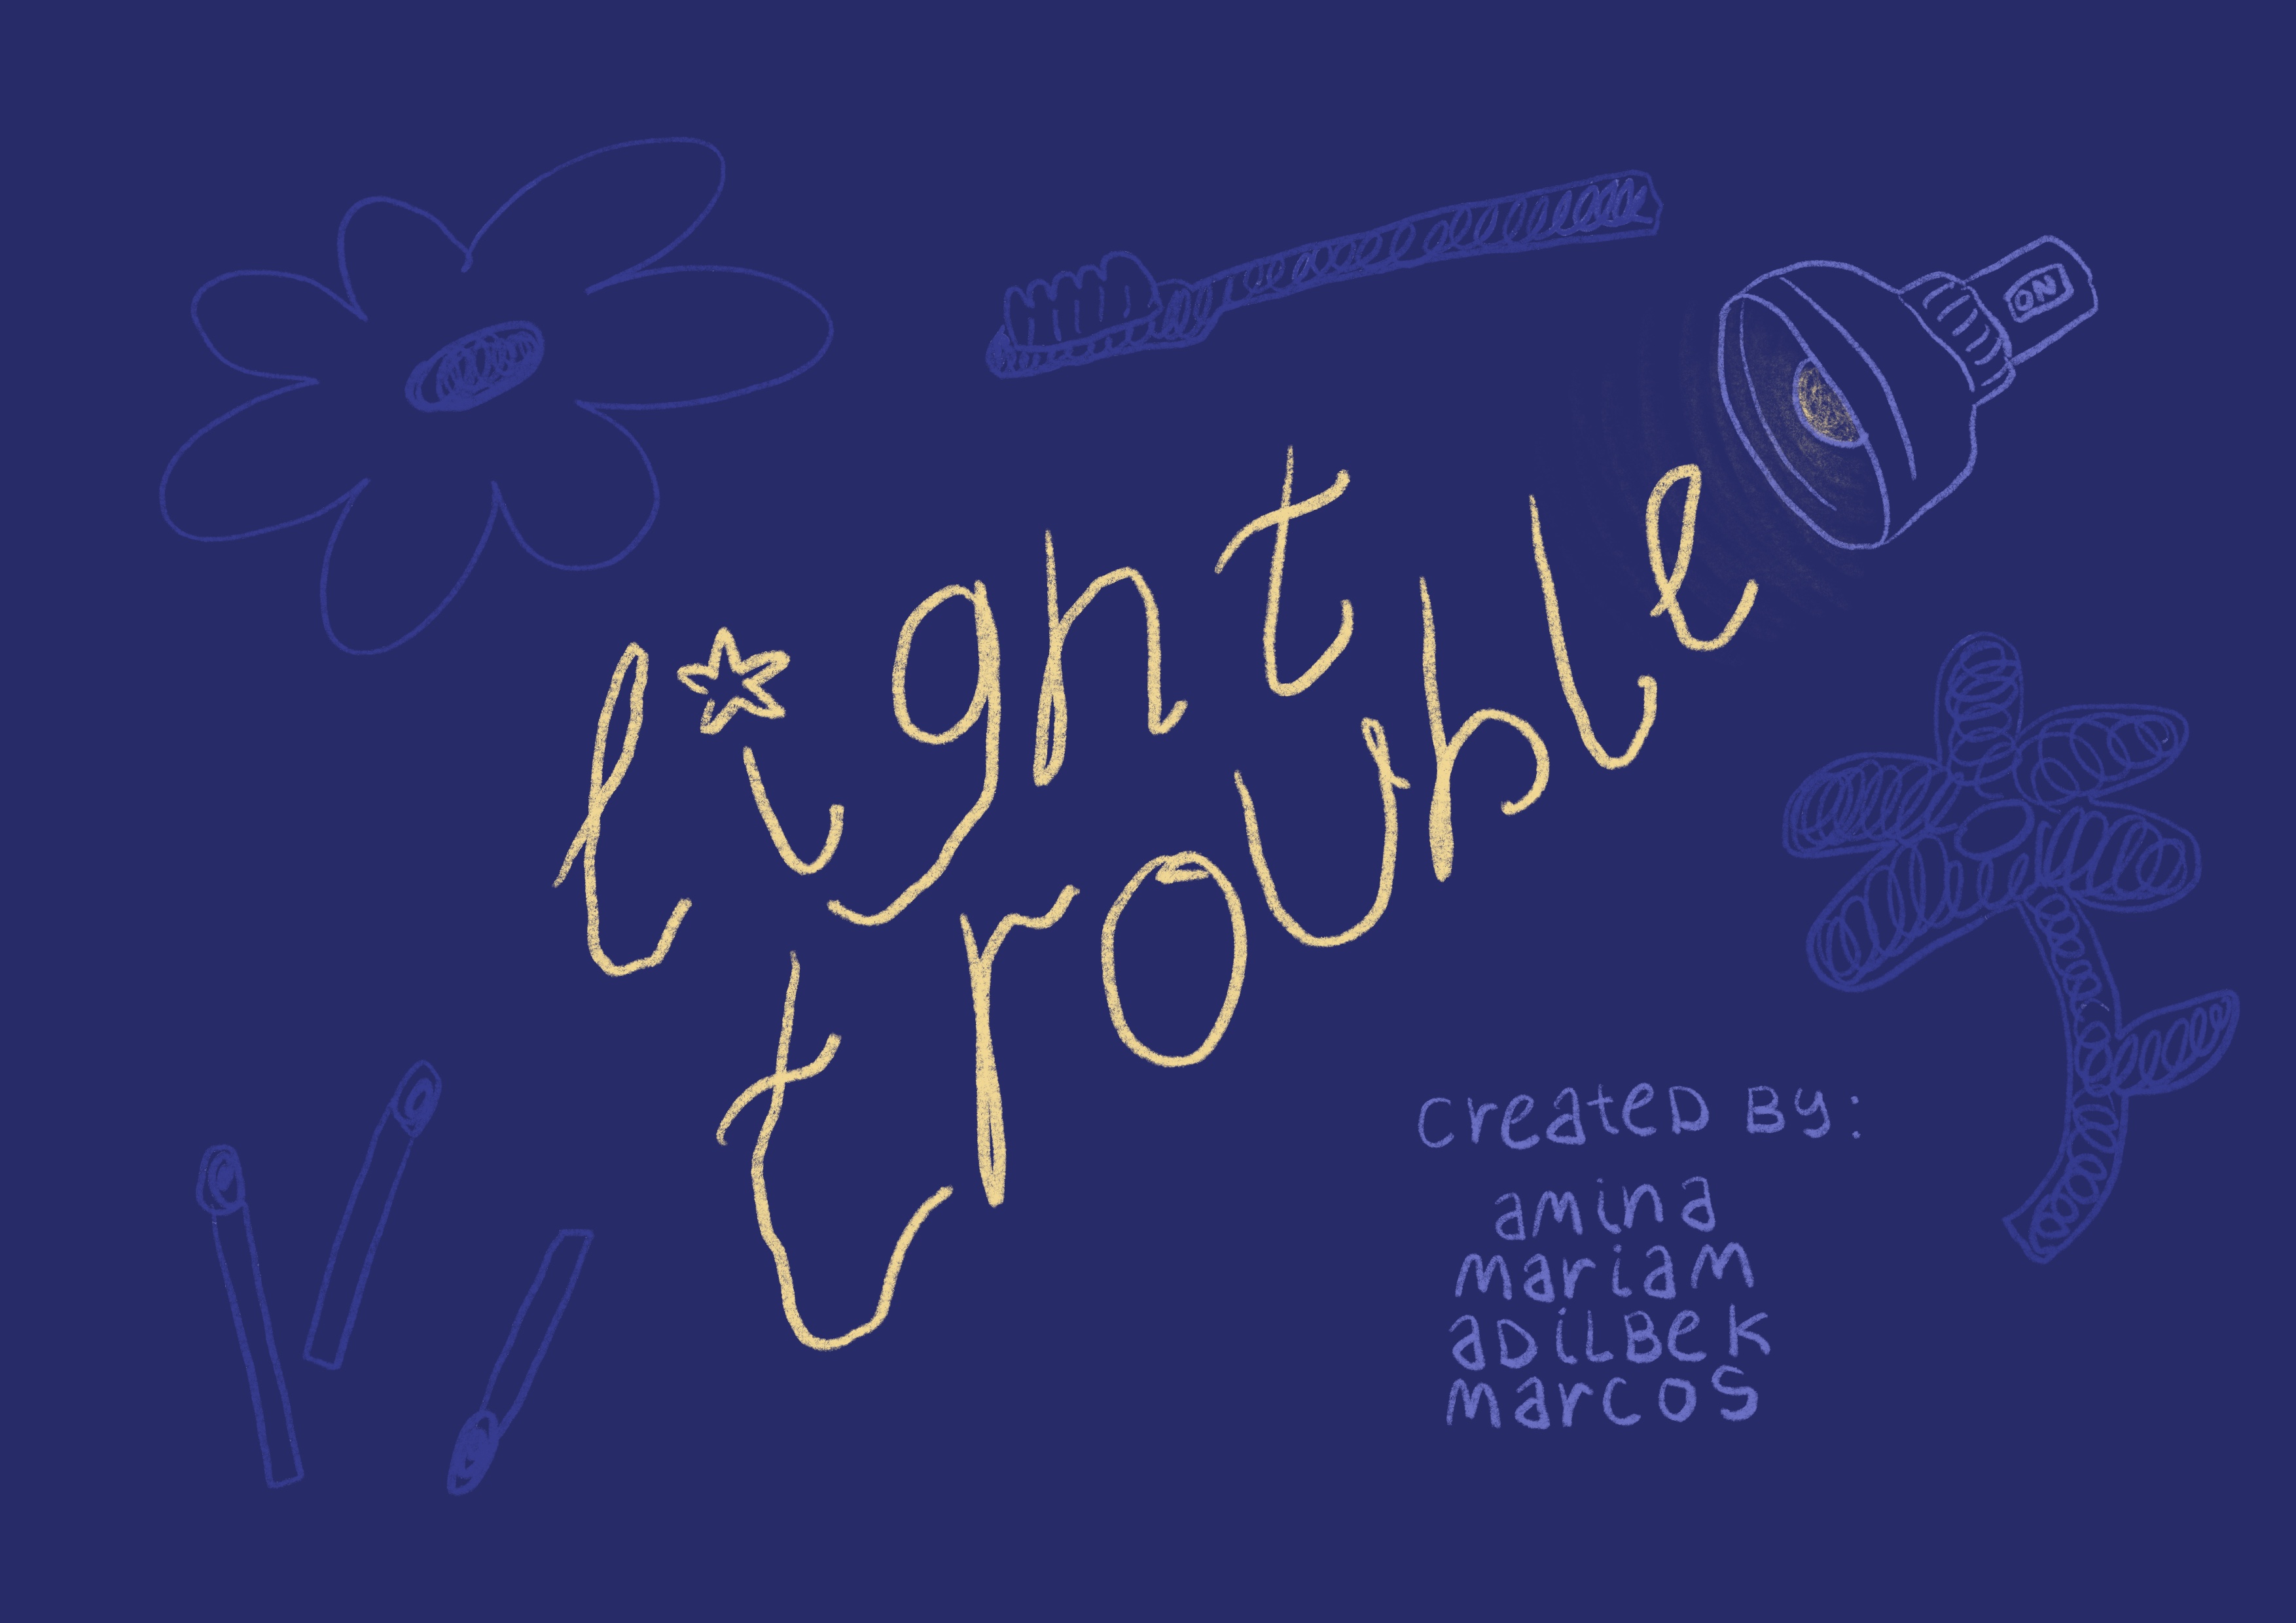 light
trouble
ON
createD By:
amina
mariam
aDiLBek
marcos